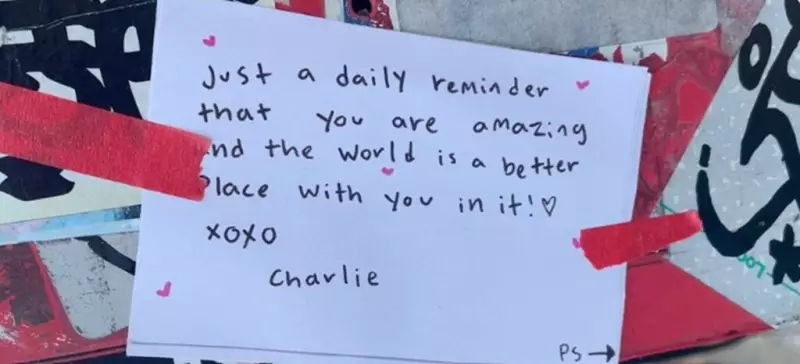 Just a daily reminder
that you are amazing
and the world is a better
place with you in it!♡
XOXO
Charlie
PS→